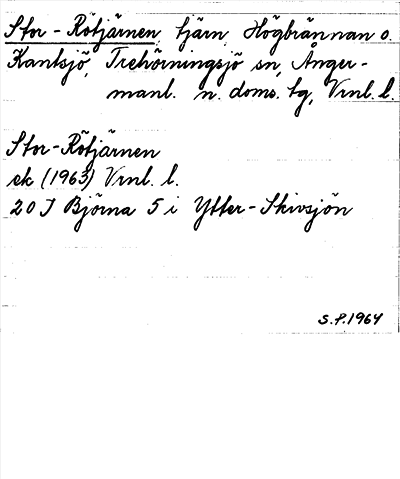 Stor-Rötjärnen, tjärn, Högbrännan o.
Kantsjö, Trehörningsjö sn, Ånger-
manl. n. doms. tg, Vrnl. l.
Stor-Rötjärnen
ek (1963) Vrnl. l.
20 J Björna 5 i Ytter-Skivsjön
S.P. 1964